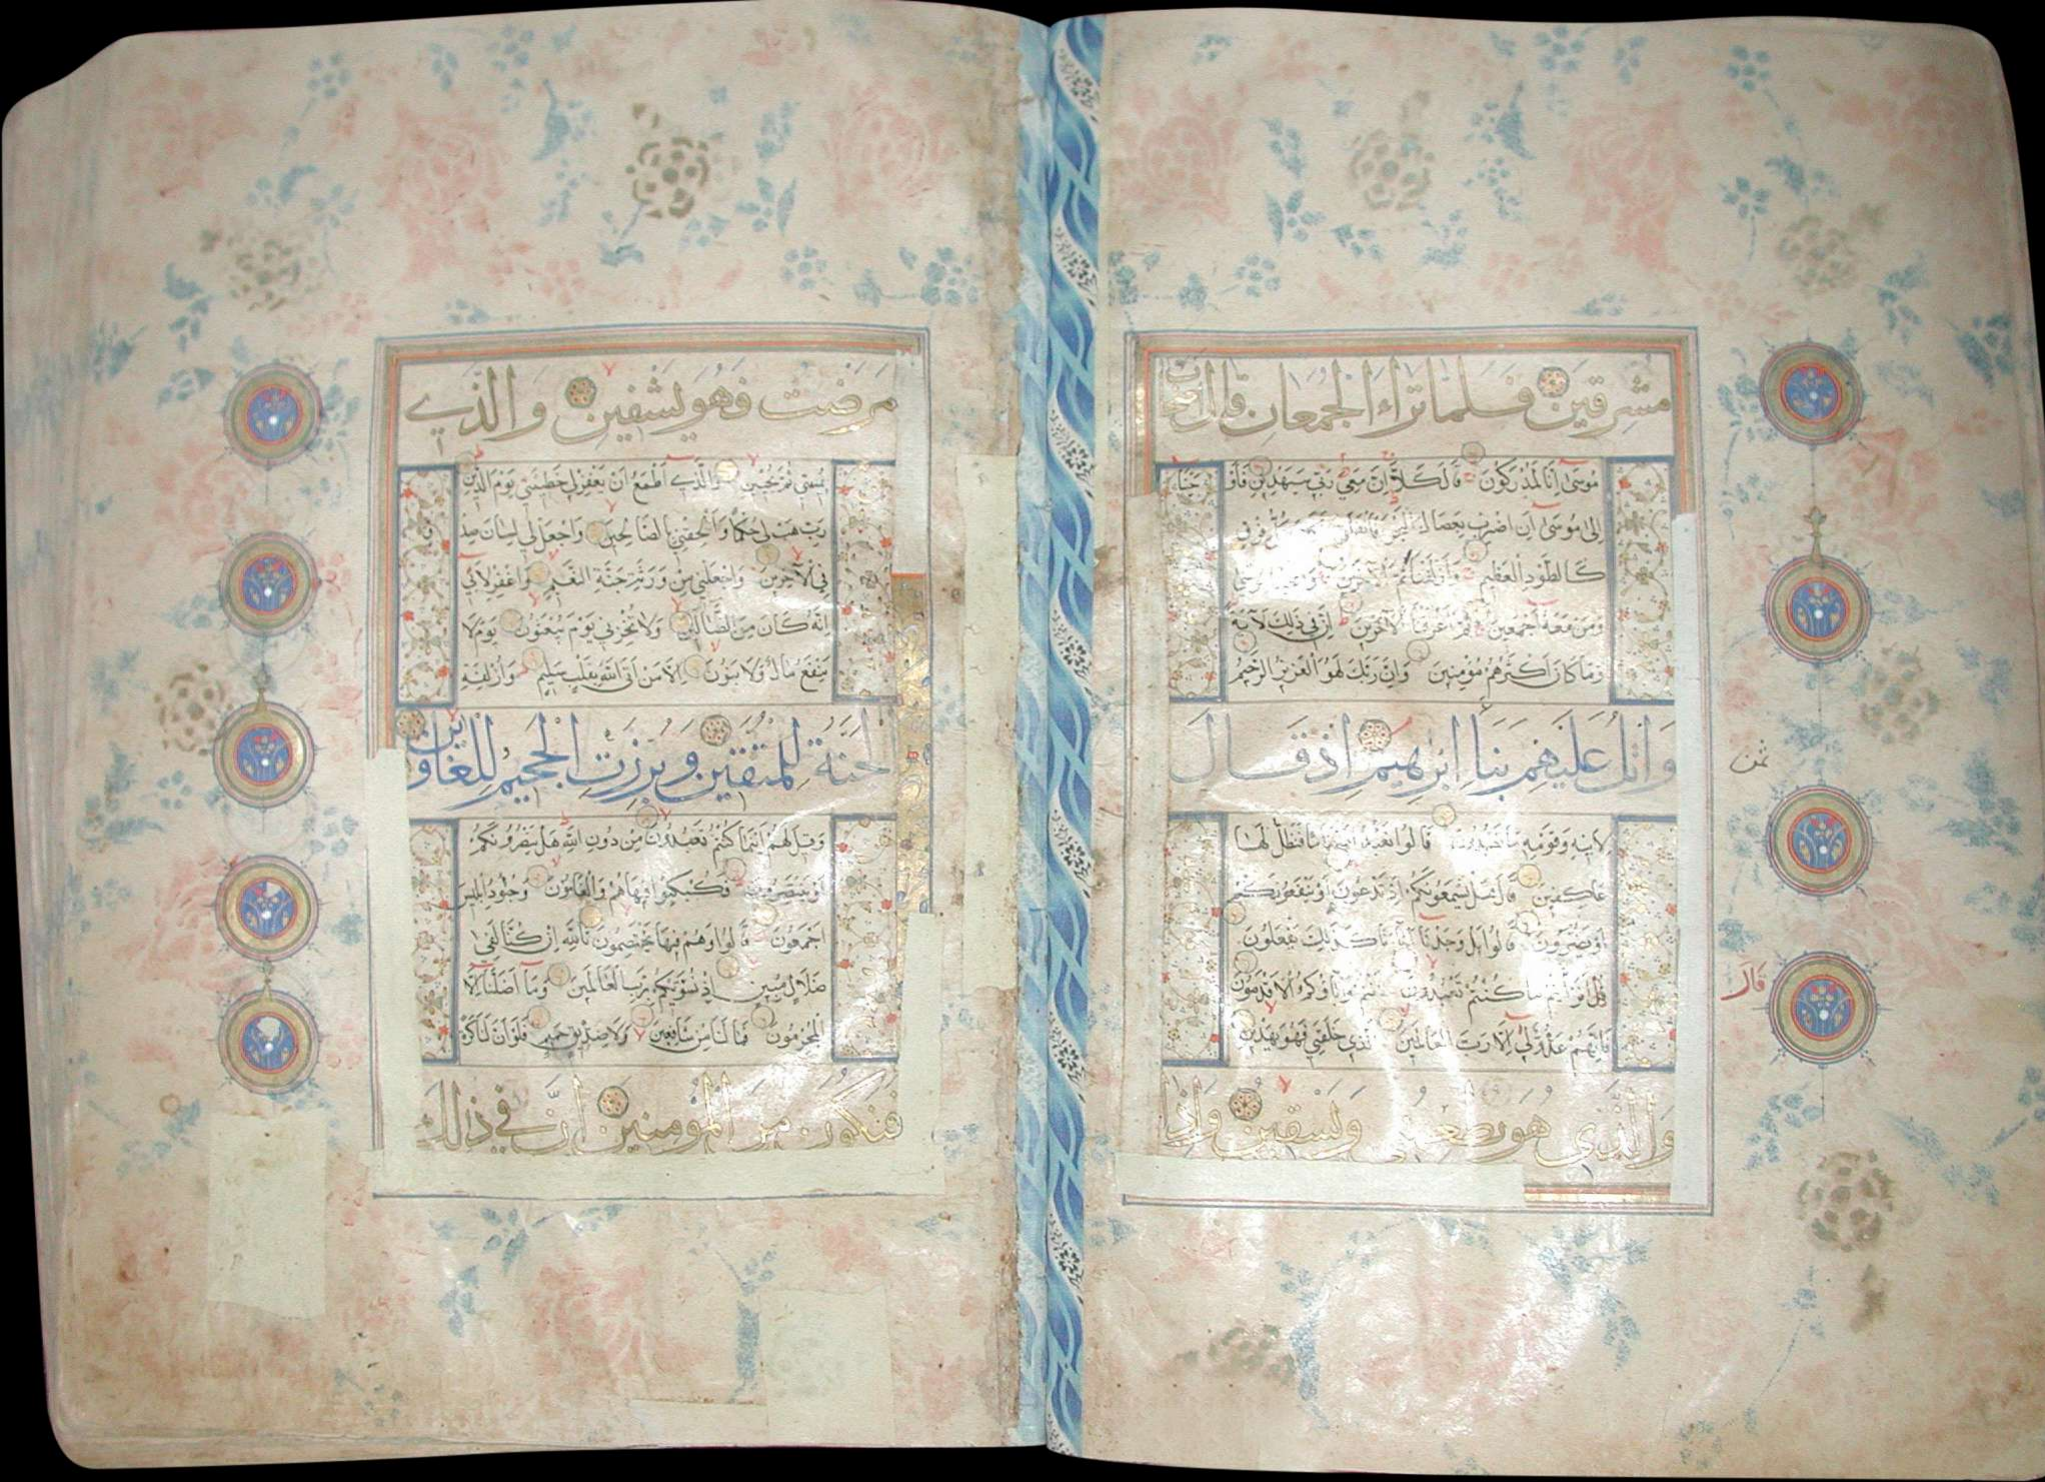 مشرقين فلما تراء الجمعان قال اصحاب
موسى انا لمدركون قال كلا ان معي ربي سيهدين فاوحينا
الى موسى ان اضرب بعصاك البحر فانفلق فكان كل فرق
كالطود العظيم وازلفنا ثم الاخرين وانجينا موسى
ومن معه اجمعين ثم اغرقنا الاخرين ان في ذلك لاية
وما كان اكثرهم مؤمنين وان ربك لهو العزيز الرحيم
واتل عليهم نبا ابرهيم اذ قال
ثمن
لابيه وقومه ما تعبدون قالوا نعبد اصناما فنظل لها
عاكفين قال هل يسمعونكم اذ تدعون او ينفعونكم
او يضرون قالوا بل وجدنا اباءنا كذلك يفعلون
قال افرايتم ما كنتم تعبدون انتم واباؤكم الاقدمون
قال
فانهم عدو لي الا رب العالمين الذي خلقني فهو يهدين
والذي هو يطعمني ويسقين واذا
مرضت فهو يشفين والذي
يميتني ثم يحيين والذي اطمع ان يغفر لي خطيئتي يوم الدين
رب هب لي حكما والحقني بالصالحين واجعل لي لسان صدق
في الاخرين واجعلني من ورثة جنة النعيم واغفر لابي
انه كان من الضالين ولا تخزني يوم يبعثون يوم لا
ينفع مال ولا بنون الا من اتى الله بقلب سليم وازلفة
الجنة للمتقين وبرزت الجحيم للغاوين
وقيل لهم اينما كنتم تعبدون من دون الله هل ينصرونكم
او ينتصرون فكبكبوا فيها هم والغاوون وجنود ابليس
اجمعون قالوا وهم فيها يختصمون تالله ان كنا لفي
ضلال مبين اذ نسويكم برب العالمين وما اضلنا الا
المجرمون فما لنا من شافعين ولا صديق حميم فلو ان لنا كرة
فنكون من المؤمنين ان في ذلك